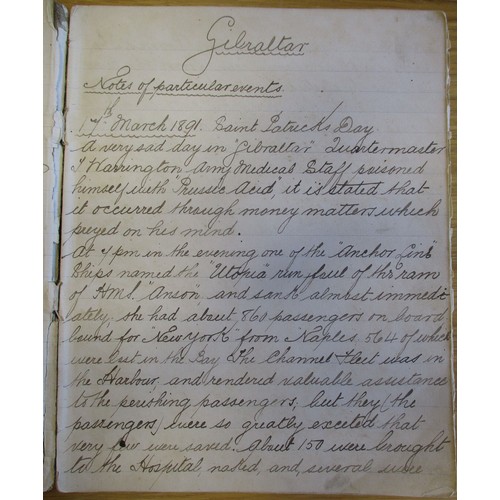 Gibraltar
Notes of particular events.
17th March 1891. Saint Patrick's Day
A very sad day in Gibraltar Quartermaster
J Warrington Army Medical Staff poisoned
himself with Prussic Acid, it is stated that
it occurred through money matters which
preyed on his mind.
At 7 pm in the evening one of the "Anchor Line"
Ships named the "Utopia" run foul of the ram
of H.M.S. "Anson", and sank almost immedi
lately, she had about 860 passengers on board
bound for "New York" from "Naples, 564 of which
were lost in the Bay. The Channel Fleet was in
the Harbour, and rendered valuable assistance
to the perishing passengers; but they (the
passengers) were so greatly excited that
very few were saved. About 150 were brought
to the Hospital, naked, and, several were